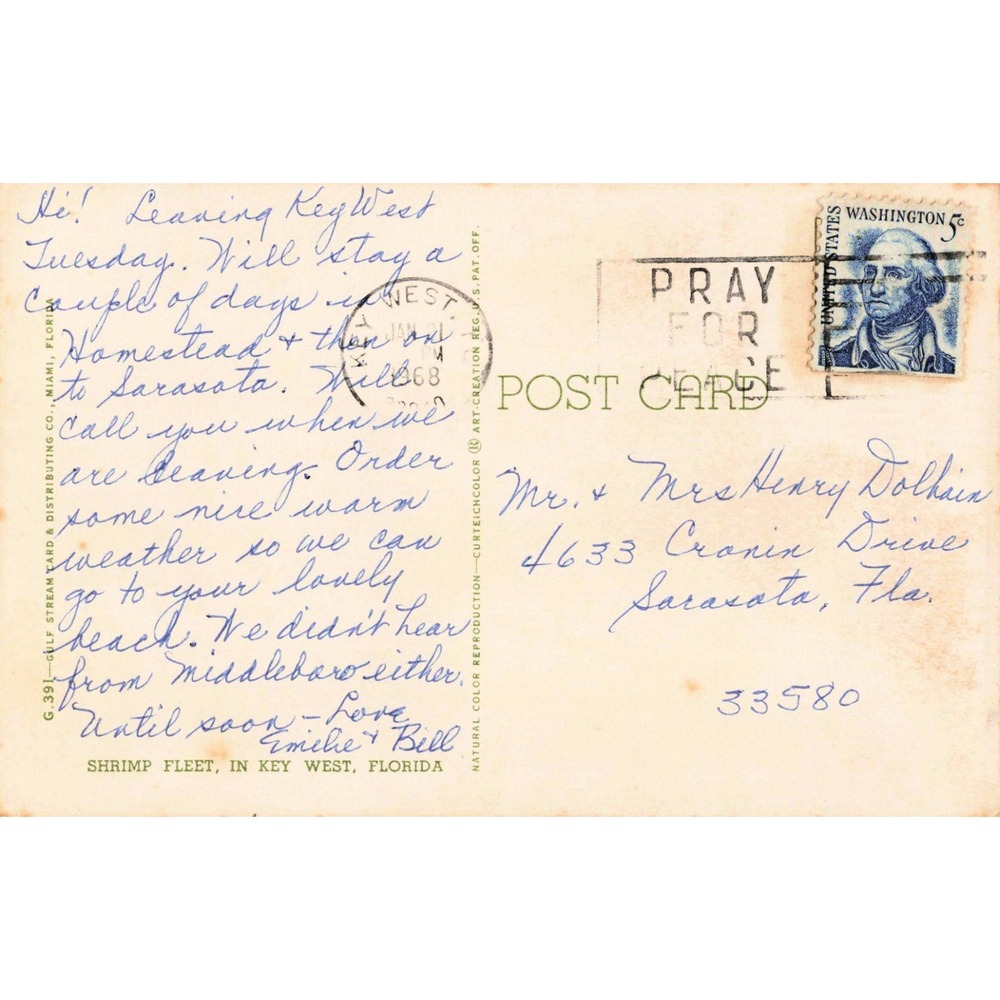 Hi! Leaving Key West
Tuesday. Will stay a
couple of days in
Homestead + then on
to Sarasota. Will
call you when we
are leaving. Order
some nice warm
weather so we can
go to your lovely
beach. We didn't hear
from Middleboro either.
Until soon - Love
Emilie + Bill
SHRIMP FLEET, IN KEY WEST, FLORIDA
G.391—GULF STREAM CARD & DISTRIBUTING CO., MIAMI, FLORIDA
NATURAL COLOR REPRODUCTION—CURTEICHCOLOR ® ART-CREATION REG. U.S. PAT. OFF.
KEY WEST,
JAN 21
PM
1968
PRAY
FOR
PEACE
UNITED STATES
WASHINGTON 5c
POST CARD
Mr. + Mrs Henry Dolhain
4633 Cronin Drive
Sarasota, Fla.
33580